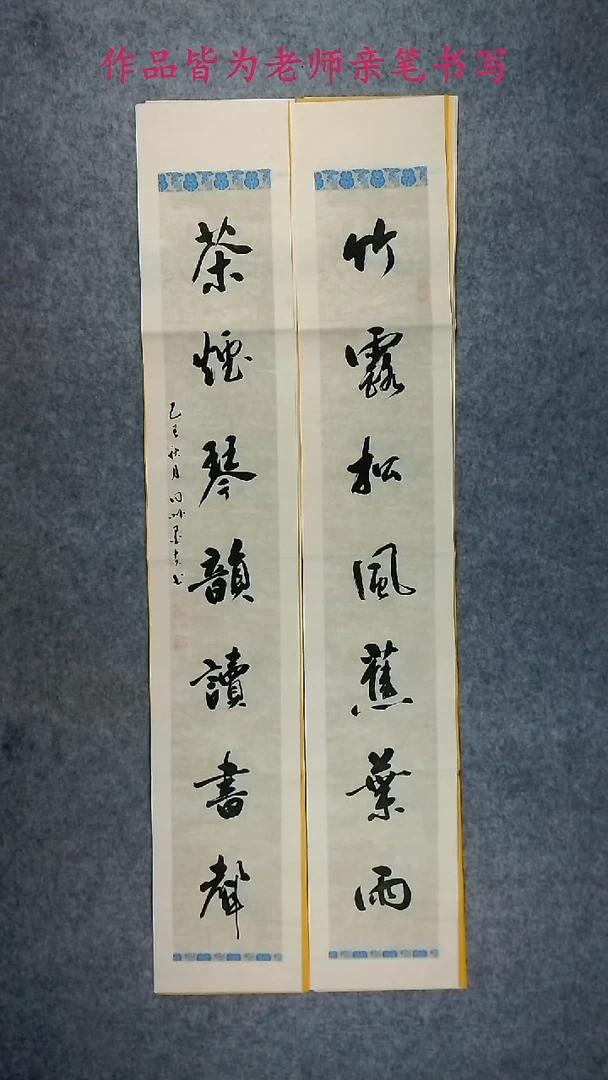 作品皆为老师亲笔书写
竹露松风蕉葉雨
茶煙琴韻讀書聲
乙巳秋月